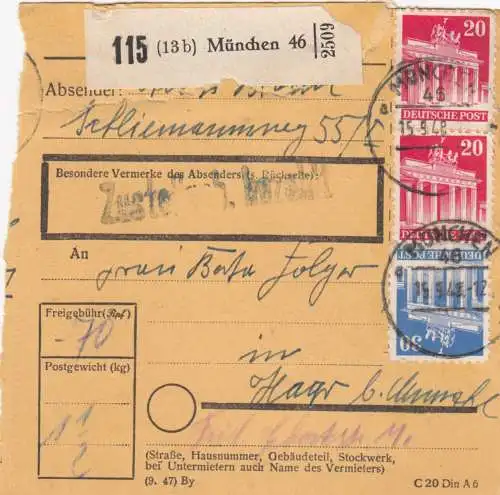 115 (13b) München 46 2509
20
DEUTSCHE POST
Absender:
MÜNCHEN
46
a
15.9.48
Schliemannweg 55/I
20
DEUTSCHE POST
Besondere Vermerke des Absenders (s. Rückseite):
An
Frau
MÜNCHEN
46
a
15.9.48-12
DEUTSCHE POST
30
Freigebühr (Rpf.)
-70
Postgewicht (kg)
1 1/2
in
Haar b. München
(Straße, Hausnummer, Gebäudeteil, Stockwerk,
bei Untermietern auch Name des Vermieters)
(9. 47) By
C 20 Din A 6